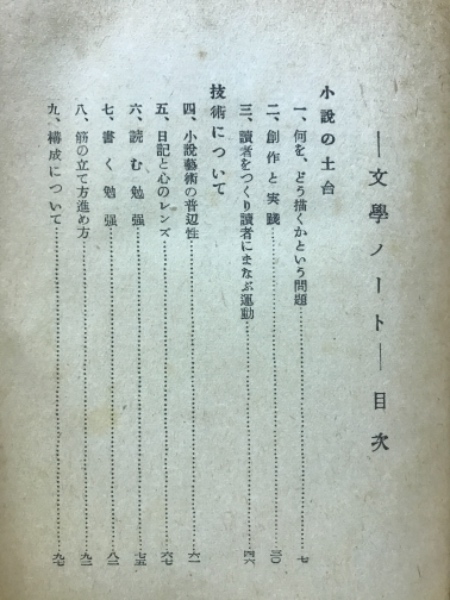 ―文學ノート―目次
小説の土台
一、何を、どう描くかという問題……七
二、創作と実践……三〇
三、讀者をつくり讀者にまなぶ運動……四六
技術について
四、小説藝術の普辺性……六一
五、日記と心のレンズ……六七
六、読む勉强……七五
七、書く勉强……八二
八、筋の立て方進め方……九二
九、構成について……九七